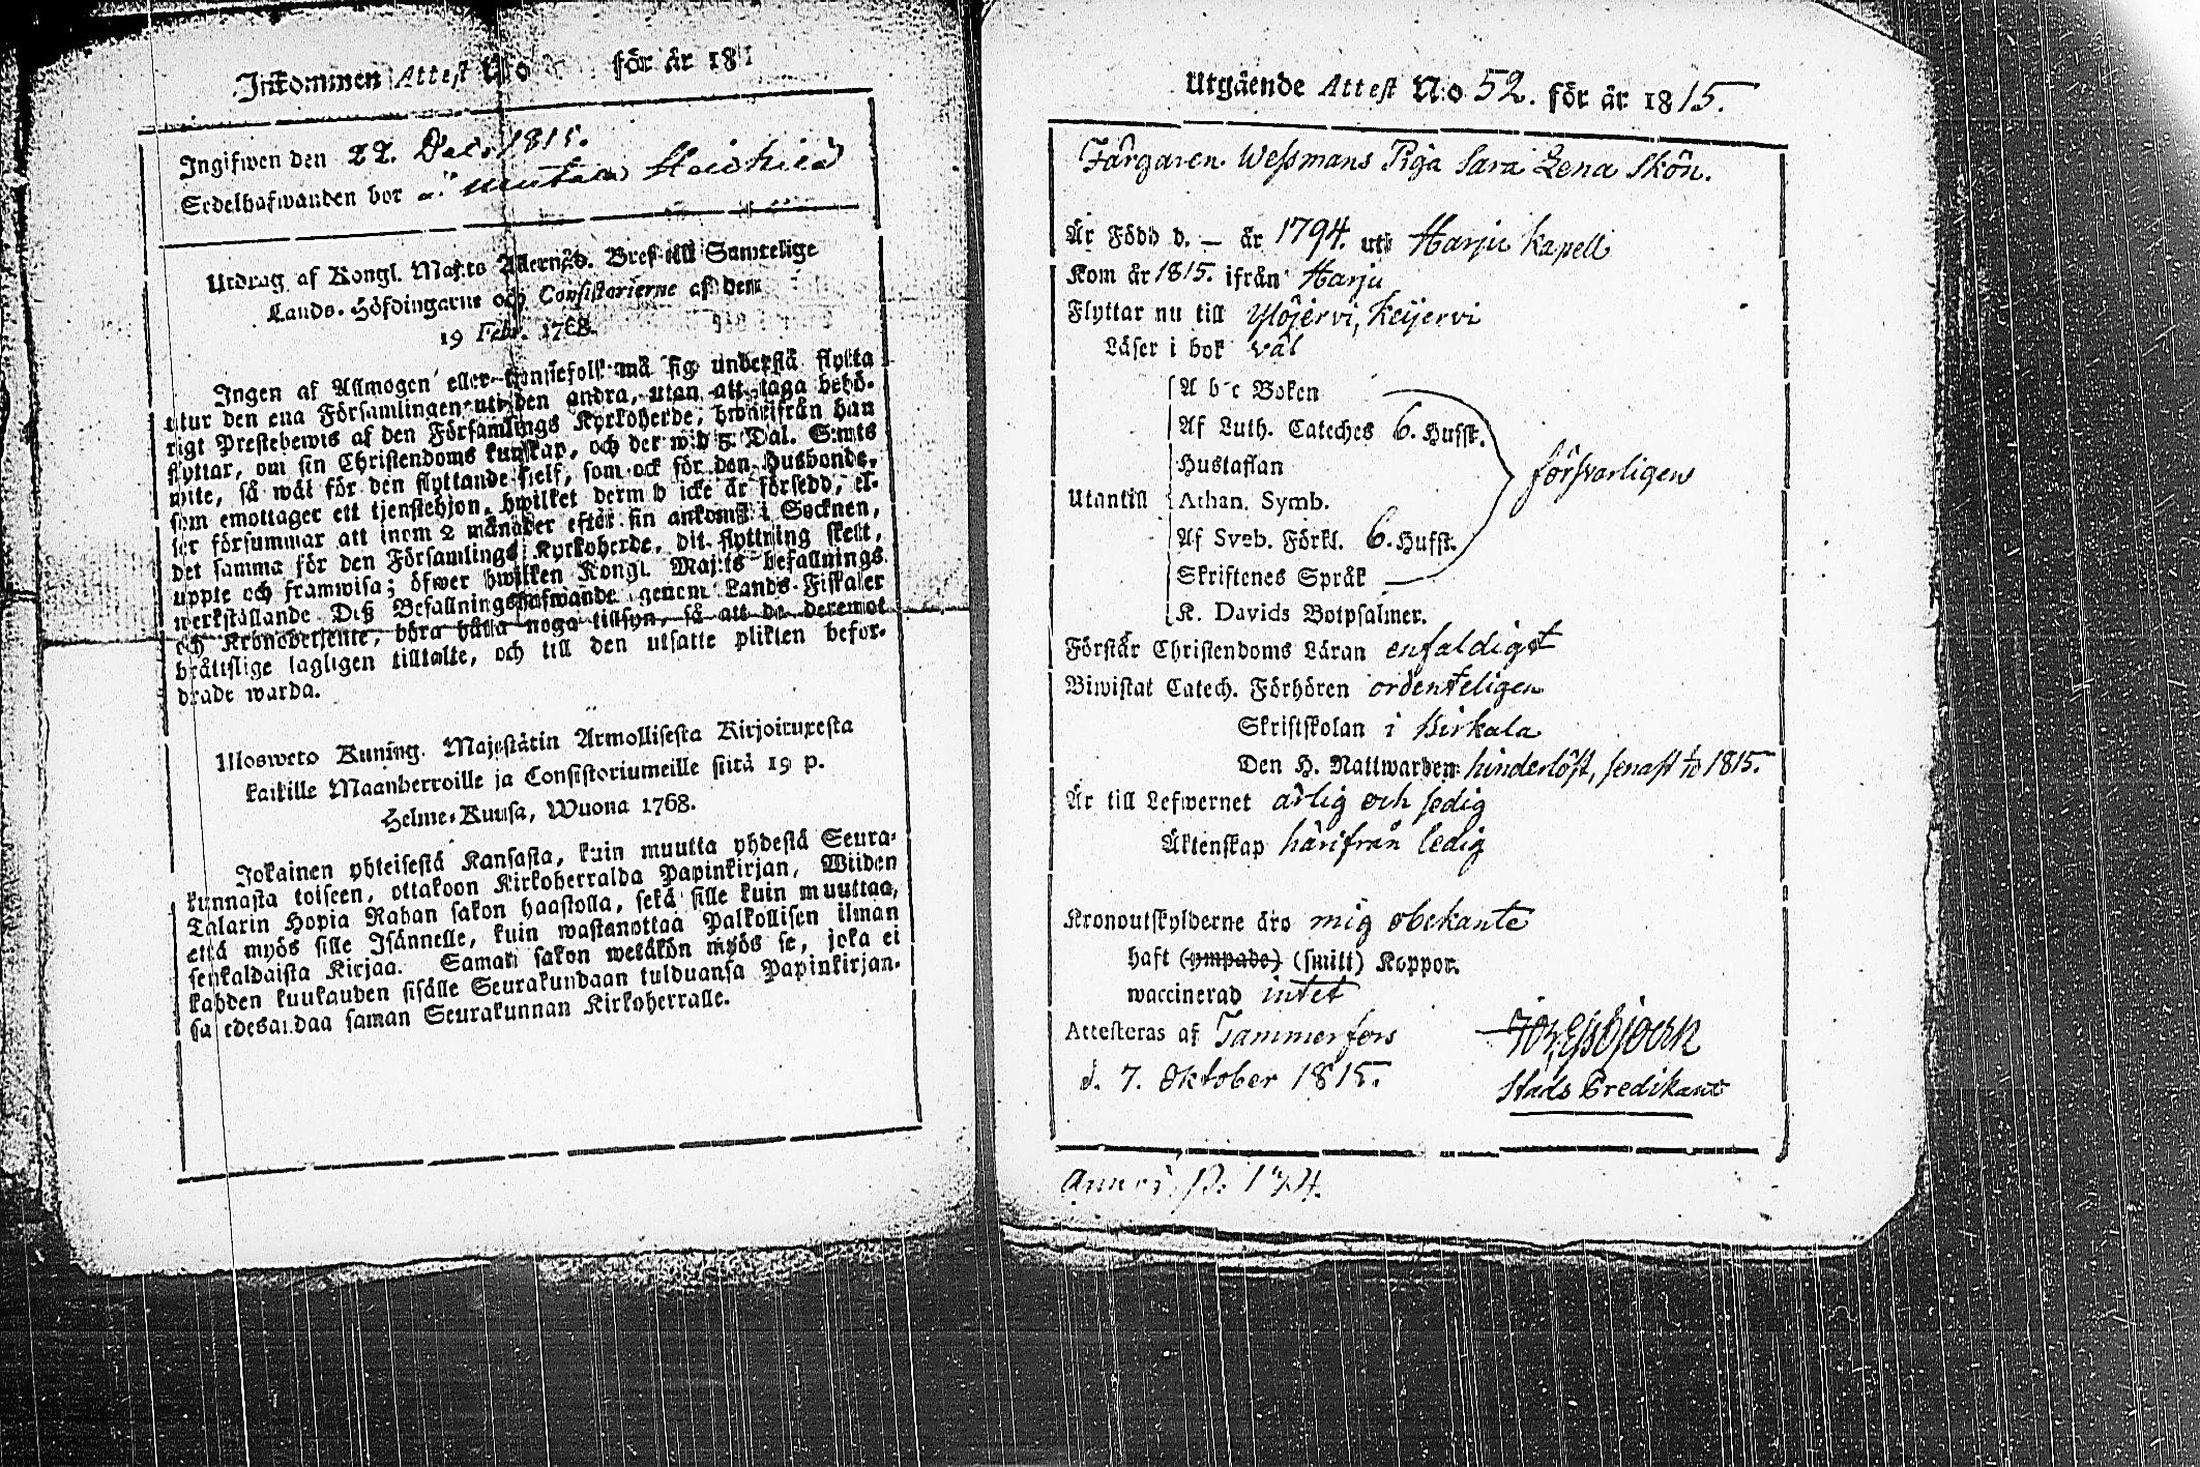 Inkommen Attest N:o för år 181
Ingifwen den 22. Dec. 1815.
Sedelhafwanden bor
Utdrag af Kongl. Maj:ts Allernåd. Bref till Samtelige
Lands-Höfdingarne och Consistorierne af den
19 Febr. 1768.
Ingen af Allmogen eller tjenstefolk må sig understå flytta
utur den ena Församlingen uti den andra, utan att taga behö-
rigt Prestebewis af den Församlings Kyrkoherde, hwarifrån han
flyttar, om sin Christendoms kunskap, och det wid 5 Dal. S:mts
wite, så wäl för den flyttande sielf, som ock för den Husbonde,
som emottager ett tjenstehjon, hwilket dermed icke är försedd, el-
ler försummar att inom 2 månader efter sin ankomst i Socknen,
det samma för den Församlings Kyrkoherde, dit flyttning skett,
uppte och framwisa; öfwer hwilken Kongl. Maj:ts befallnings
werkställande Deß Befallningshafwande genom Lands-Fiskaler
och Kronobetjente, böra hålla noga tillsyn, så att de deremot
bråttslige lagligen tilltalte, och till den utsatte plikten befor-
drade warda.
Ulosweto Kuning. Majestätin Armollisesta Kirjoituxesta
kaikille Maanherroille ja Consistoriumeille siitä 19 p.
Helme-Kuusa, Wuona 1768.
Jokainen yhteisestä Kansasta, kuin muutta yhdestä Seura-
kunnasta toiseen, ottakoon Kirkoherralda Papinkirjan, Wiiden
Talarin Hopia Rahan sakon haastolla, sekä sille kuin muuttaa,
että myös sille Isännelle, kuin wastanottaa Palkollisen ilman
senkaldaista Kirjaa. Saman sakon wetäkön myös se, joka ei
kahden kuukauden sisälle Seurakundaan tulduansa Papinkirjan-
sa edesandaa saman Seurakunnan Kirkoherralle.
Utgående Attest N:o 52. för år 1815.
Färgaren Weßmans Piga Sara Lena Skön.
Är Född d. – år 1794. uti Harju Kapell
Kom år 1815. ifrån Harju
Flyttar nu till Ylöjervi, Keijervi
Läser i bok väl
A b c Boken
Af Luth. Cateches 6. Hufst.
Hustaflan försvarligen
Utantill Athan. Symb.
Af Sveb. Förkl. 6. Hufst.
Skriftenes Språk
K. Davids Botpsalmer.
Förstår Christendoms Läran enfaldigt
Biwistat Catech. Förhören ordenteligen
Skriftskolan i Birkala
Den H. Nattwarden hinderlöst, senast 1815.
Är till Lefwernet ärlig och sedig
Äktenskap härifrån ledig
Kronoutskylderne äro mig obekante
haft (ympade) (smitt) Koppor.
waccinerad intet
Attesteras af Tammerfors
d. 7. Oktober 1815.
Stads Predikant